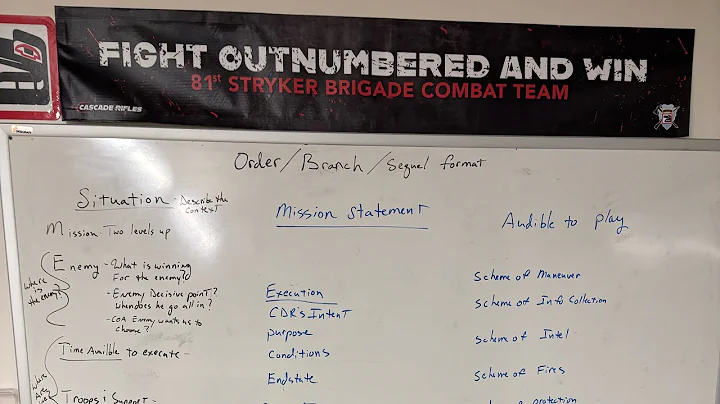 FIGHT OUTNUMBERED AND WIN
81st STRYKER BRIGADE COMBAT TEAM
CASCADE RIFLES
Order/Branch/Sequel format
Situation - Describe the
Context
Mission - Two levels up
Enemy - What is winning
For the enemy?
- Enemy Decisive point?
When does he go all in?
- COA Enemy wants us to
choose?
where
is
the enemy?
Time Availble to execute -
where
Are
Troops & Support -
Mission Statement
Execution
CDR's Intent
purpose
Conditions
Endstate
Audible to play
Scheme of Maneuver
Scheme of Info Collection
Scheme of Intel
Scheme of Fires
protection